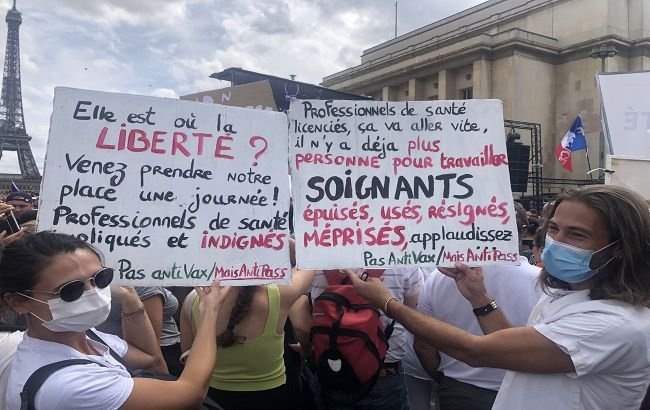 Elle est où la
LIBERTÉ ?
Venez prendre notre
place une journée !
Professionnels de santé
pliqués et INDIGNÉS
Pas antiVax/Mais AntiPass
Professionnels de santé
licenciés, ça va aller vite,
il n'y a déja plus
PERSONNE POUR TRAVAILLER
SOIGNANTS
ÉPUISÉS, USÉS, RÉSIGNÉS,
MÉPRISÉS, applaudissez
Pas AntiVax/Mais AntiPass